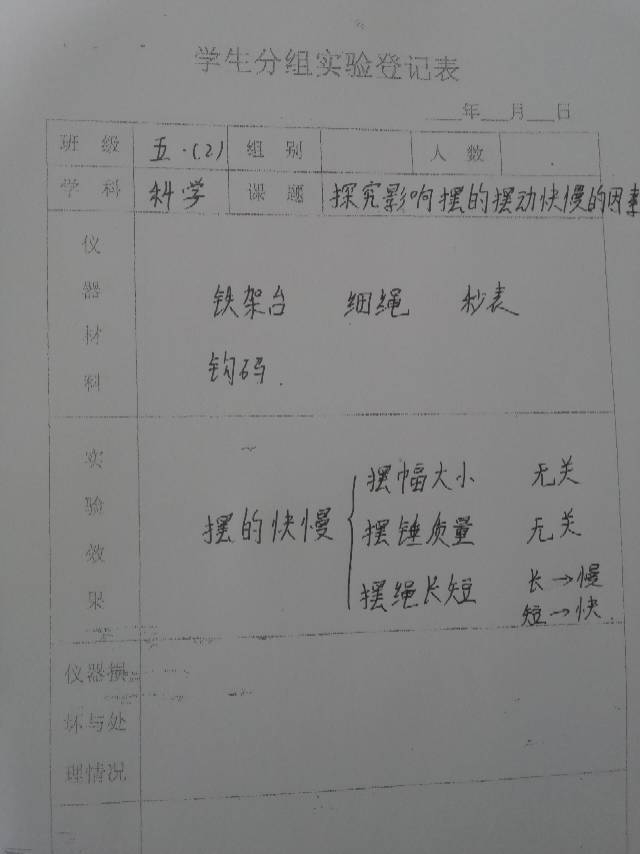 学生分组实验登记表
年 月 日
班级 五.(2) 组别 人数
学科 科学 课题 探究影响摆的摆动快慢的因素
仪器材料
铁架台 细绳 秒表
钩码.
实验效果
摆的快慢
摆幅大小 无关
摆锤质量 无关
摆绳长短 长→慢
短→快.
仪器损
坏与处
理情况